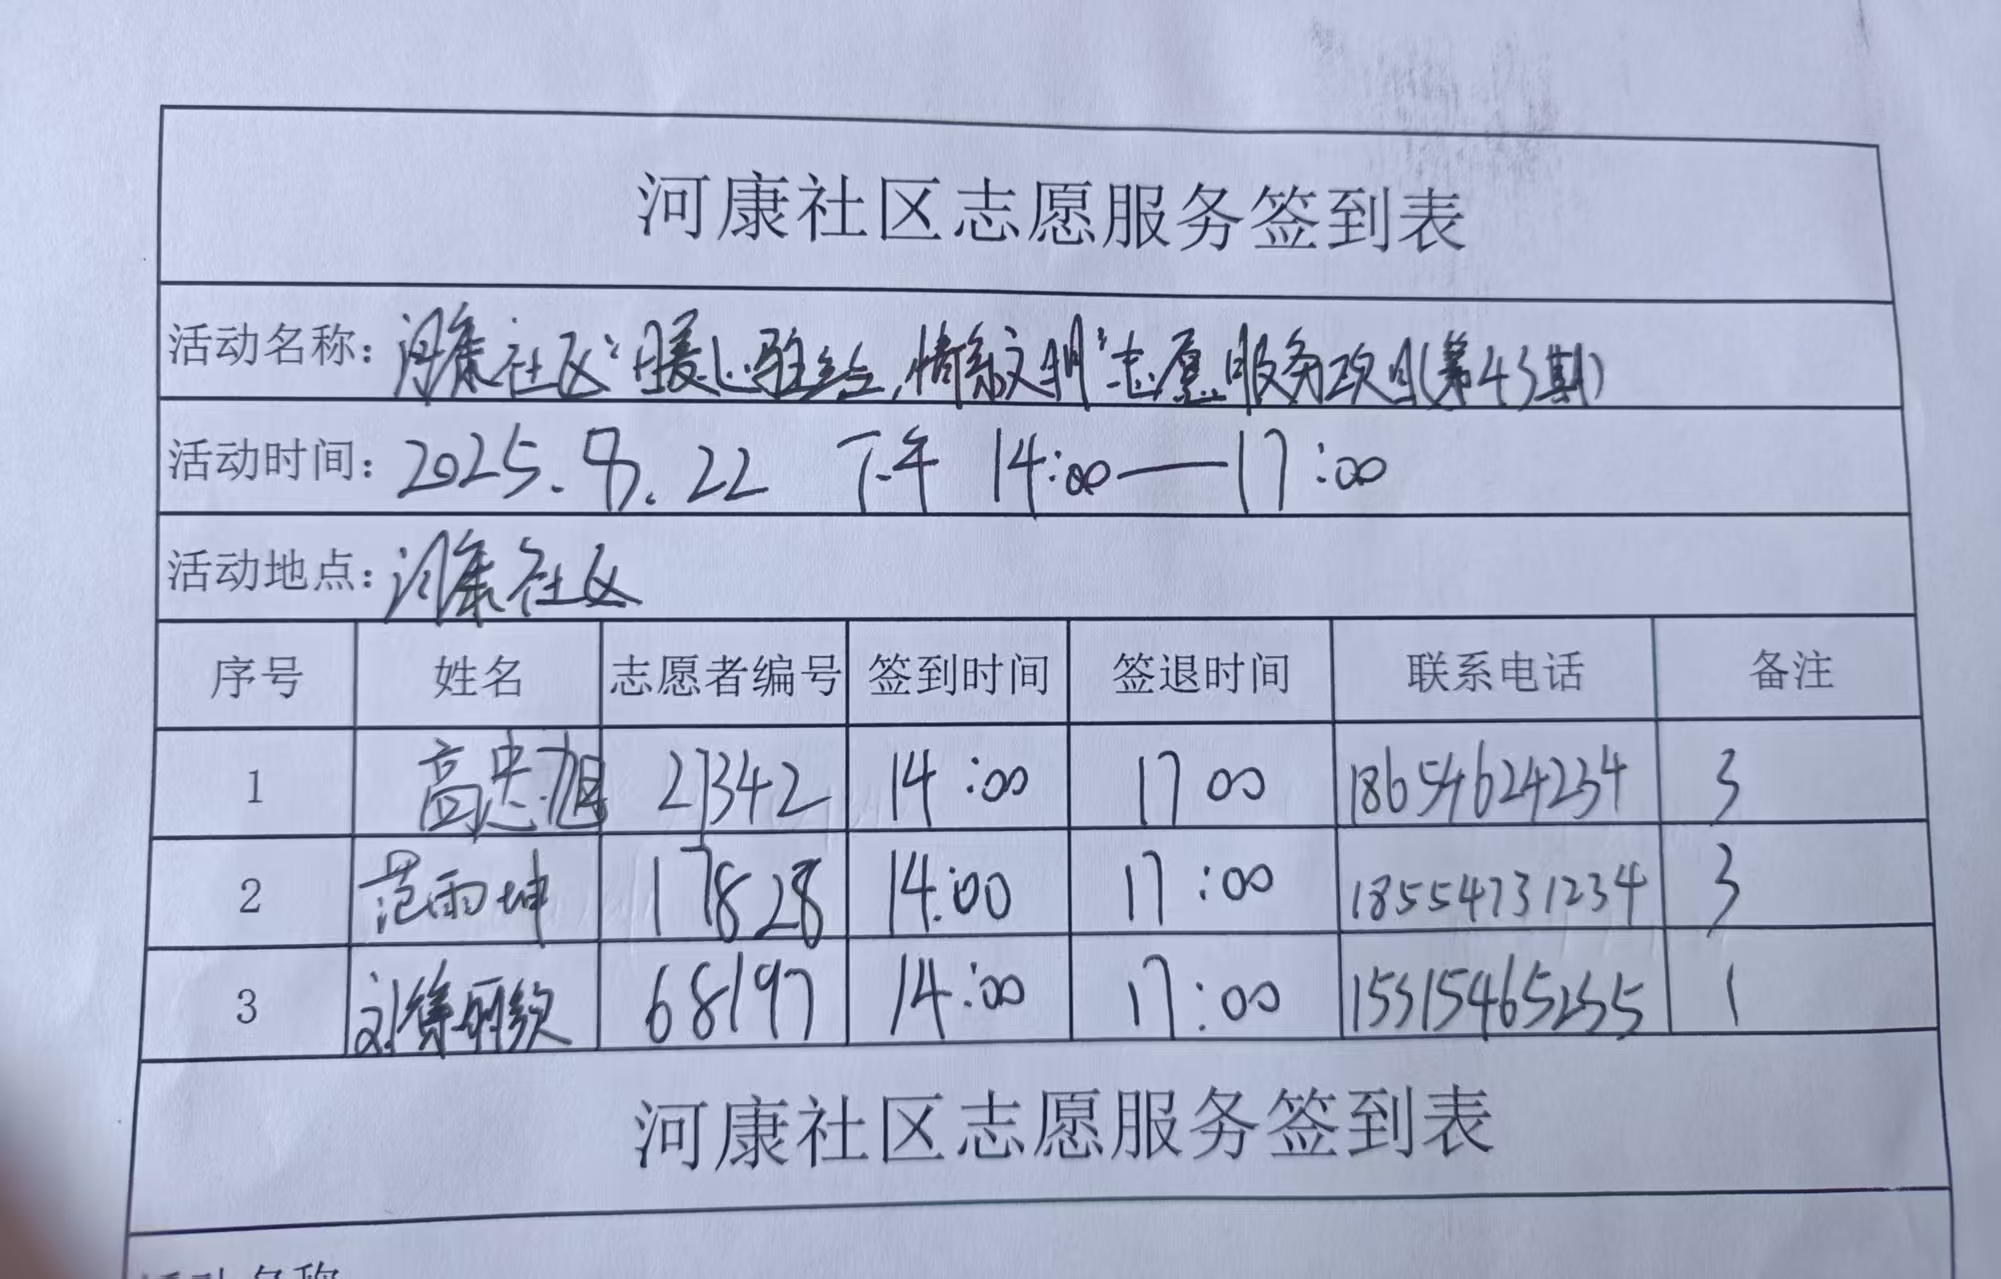 河康社区志愿服务签到表
活动名称：河康社区"暖心驿站,情系文明"志愿服务项目(第43期)
活动时间：2025.8.22 下午 14:00—17:00
活动地点：河康社区
序号 姓名 志愿者编号 签到时间 签退时间 联系电话 备注
1 高忠旭 27342 14:00 17 00 18654624234 3
2 范雨坤 17828 14:00 17:00 18554731234 3
3 68197 14:00 17:00 15315465255 1
河康社区志愿服务签到表
活动名称